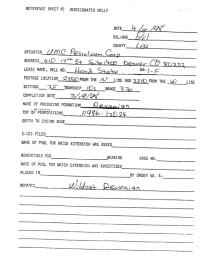 REFERENCE SHEET FOR UNDESIGNATED WELLS
DATE
COUNTY Lea
OPERATOR UMC Petroleum Corp
ADDRESS 410 17th St Suite 1400 Denver CO 80202
LEASE NAME, WELL NO. State #1-F
FOOTAGE LOCATION 2250 FROM THE N LINE AND 2310 FROM THE W LINE
SECTION 25 TOWNSHIP 10s RANGE 33e
COMPLETION DATE
NAME OF PRODUCING FORMATION Devonian
TOP OF PERFORATIONS
DEPTH TO CASING SHOE
C-123 FILED
NAME OF POOL FOR WHICH EXTENSION WAS ASKED
ADVERTISED FOR HEARING CASE NO.
NAME OF POOL FOR WHICH EXTENSION WAS ADVERTISED
PLACED IN BY ORDER NO. R-
REMARKS Wildcat Devonian